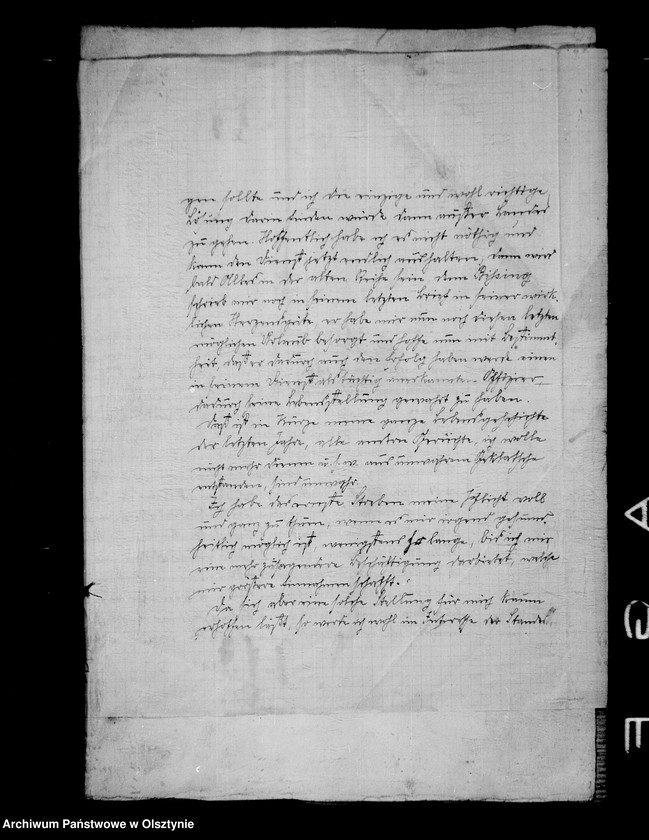 gen sollte und ich die einzige und wohl richtige
Lösung darin finden würde dann außer Landes
zu gehen. Hoffentlich habe ich es nicht nöthig und
kann den Dienst jetzt endlich aushalten, dann wird
bald Alles in der alten Reihe sein, denn
schrieb mir noch in seinem letzten Brief in seiner wirk-
lichen Herzensgüte, er habe mir nun noch diesen letzten
möglichen Urlaub besorgt und hoffe nun mit Bestimmt-
heit, daß er dadurch auch den Erfolg haben werde einen
in seinem Dienst als tüchtig anerkannten Offizier
dadurch seine Lebensstellung gewahrt zu haben.
Das ist in Kürze meine ganze Lebensgeschichte
der letzten Jahre, alle andren Gerüchte, ich wolle
nicht mehr dienen u.s.w. aus unwahrem Geklatsche
entstanden, sind unwahr.
Ich habe das ernste Streben meine Pflicht voll
und ganz zu thun, wenn es mir irgend gesund-
heitlich möglich ist, wenigstens so lange, bis sich mir
eine mehr zusagendere Beschäftigung darbietet, welche
mir größere Einnahmen schafft.
Da sich aber eine solche Stellung für mich kaum
erhoffen läßt, so werde ich wohl im Interesse des Standes
Archiwum Państwowe w Olsztynie